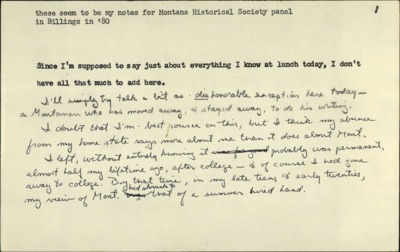 these seem to be my notes for Montana Historical Society panel
in Billings in '80
1
Since I'm supposed to say just about everything I know at lunch today, I don't
have all that much to add here.
I'll simply try talk a bit as dishonorable exception here today—
a Montanan who has moved away, & stayed away, to do his writing.
I doubt that I'm best source on this, but I think my absence
from my home state says more about me than it does about Mont.
I left, without entirely knowing it probably was permanent,
almost half my lifetime ago, after college — & of course I had gone
away to college. By that time, in my late teens & early twenties,
my view of Mont. had shrunk to that of a summer hired hand.